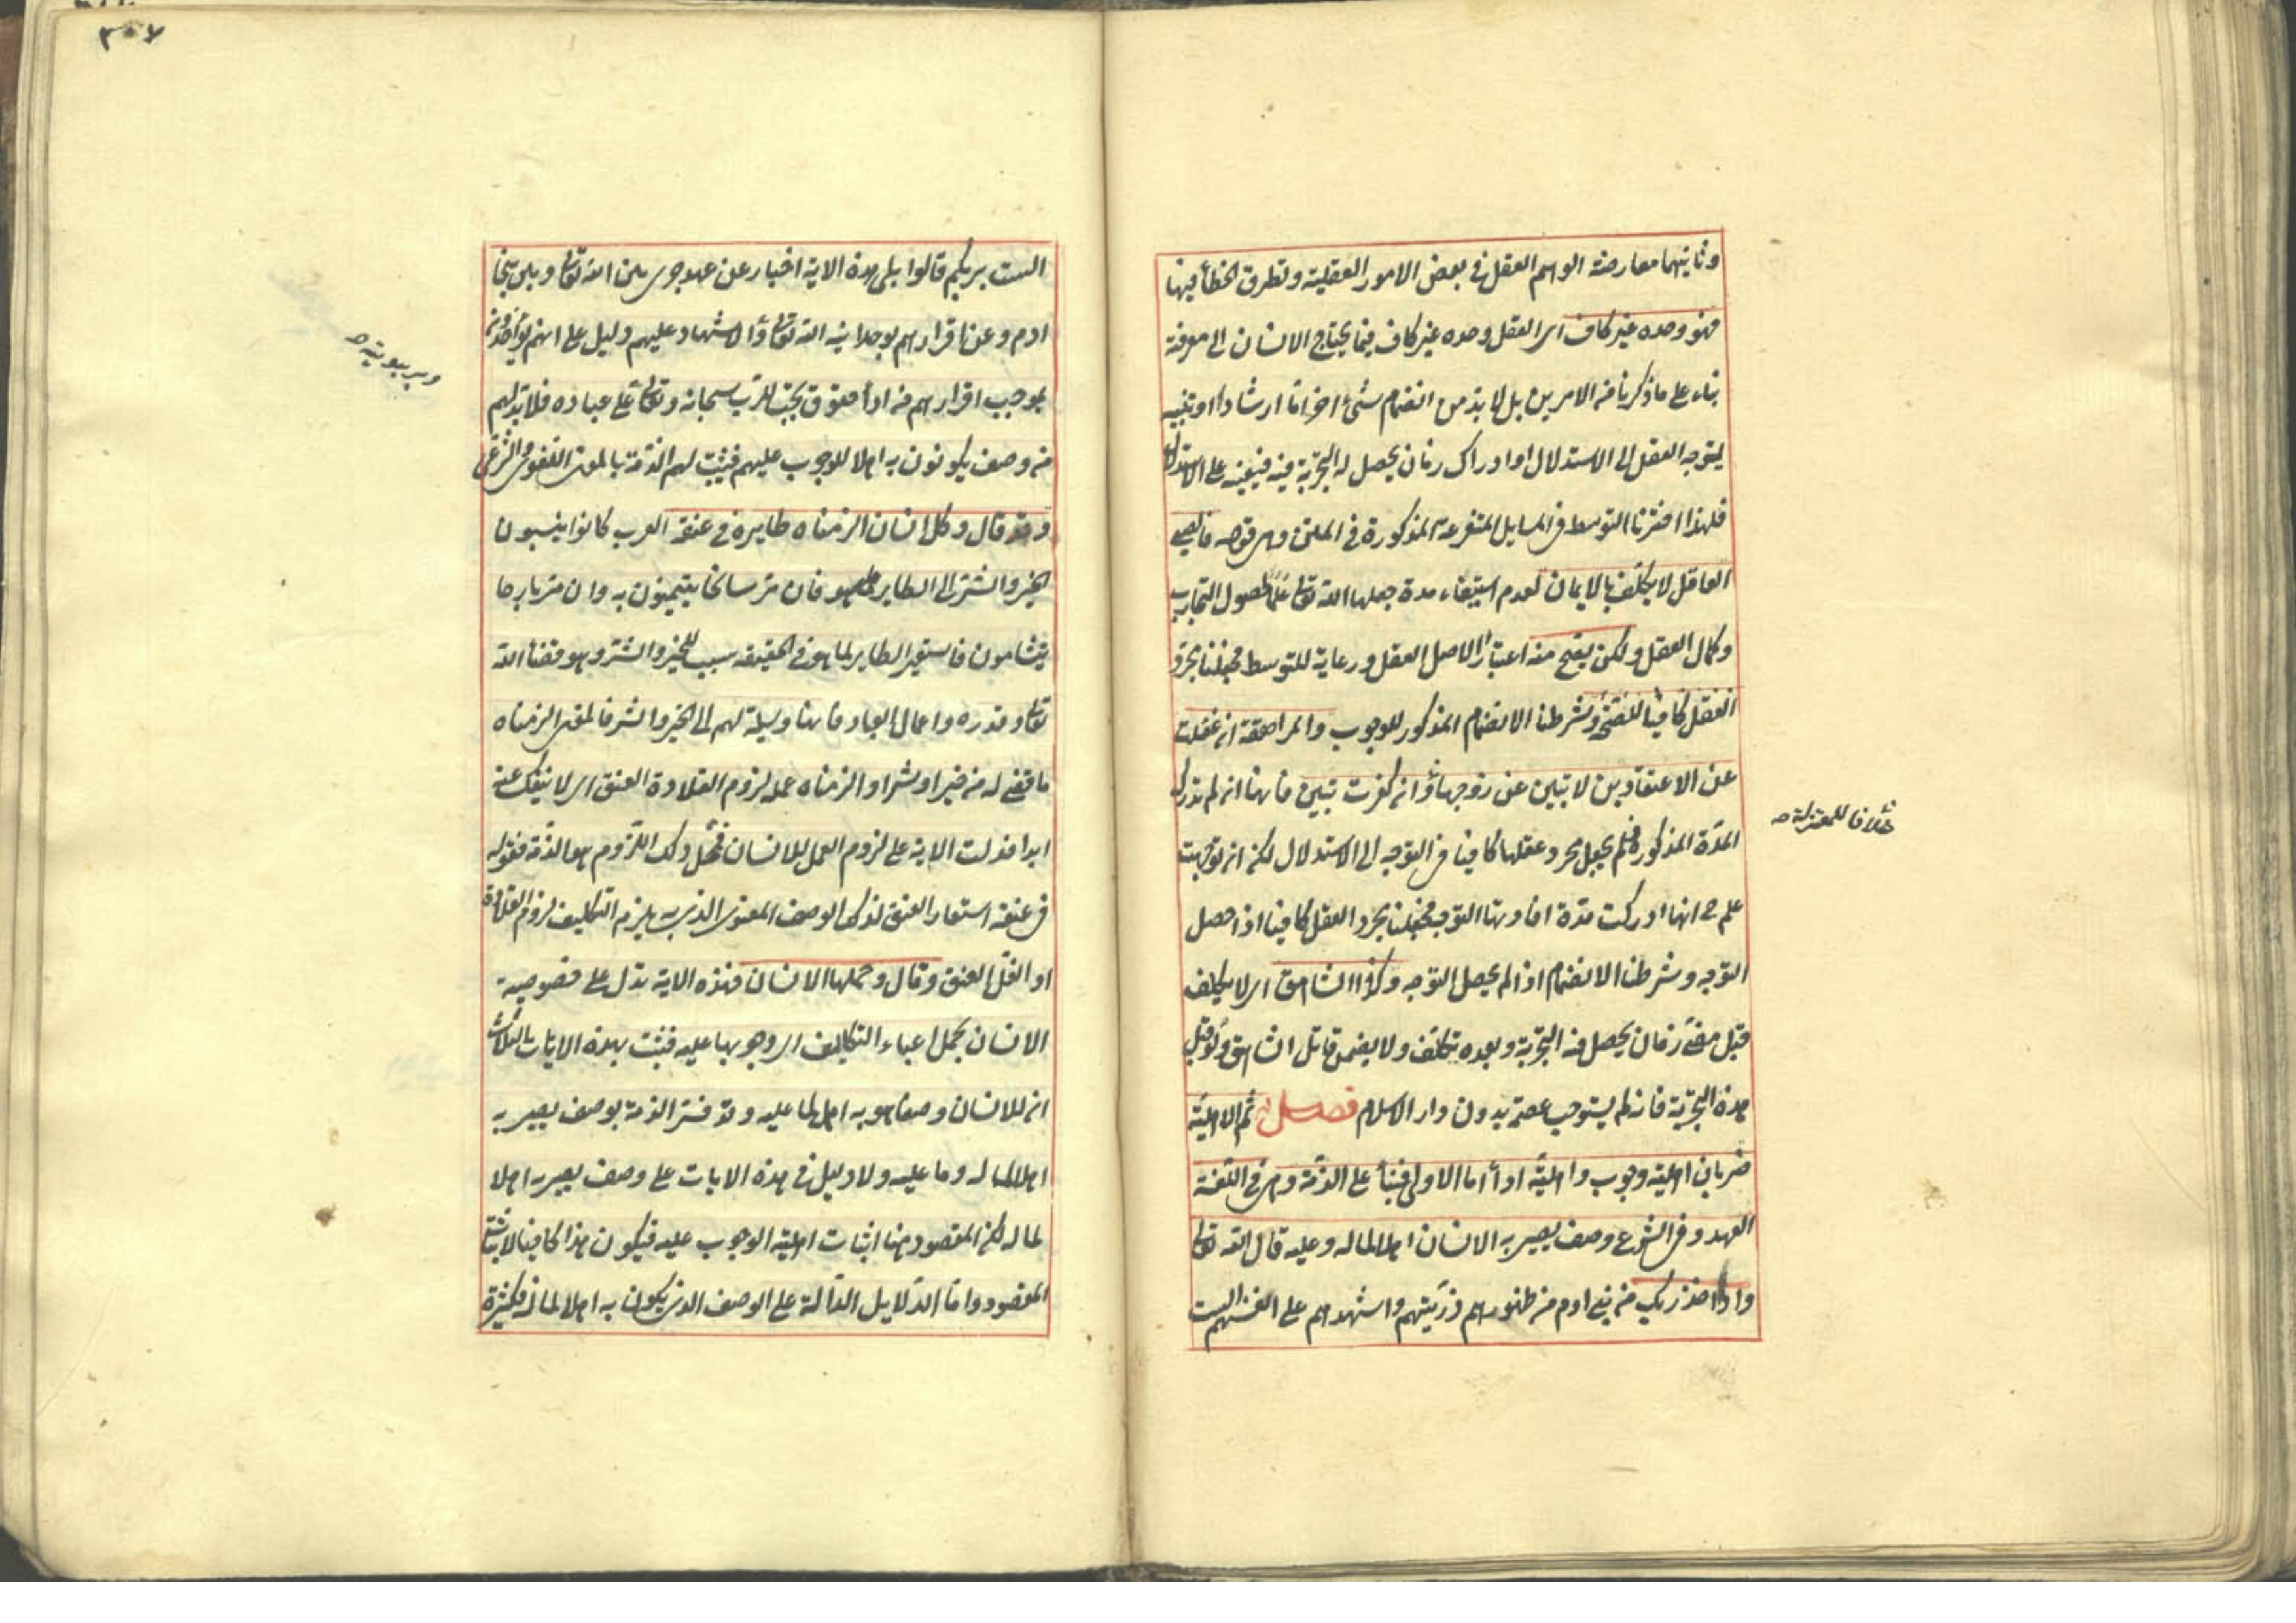 وثانيهما معارضة الوهم العقل في بعض الامور العقلية وتطرق الخطأ فيها
فهو وحده غير كاف اى العقل وحده غير كاف فيما يحتاج الانسان الى معرفته
بناء على ما ذكرنا من الامرين بل لا بد من انضمام شئ اخر اما ارشاد او تنبيه
ليتوجه العقل الى الاستدلال او ادراك زمان يحصل له التجربة فيه فيعينه على الاستدلال
فلهذا اخترنا التوسط في المسايل المتفرعة المذكورة في المتن وهى قوله فالصبى
العاقل لا يكلف بالايمان لعدم استيفاء مدة جعلها الله تعالى علما لحصول التجارب
وكمال العقل ولكن يصح منه اعتبارا لاصل العقل ورعاية للتوسط فجعلنا مجرد
العقل كافيا للصحة وشرطنا الانضمام المذكور للوجوب والمراهقة ان غفلت
عن الاعتقادين لا تبين عن زوجها وان كفرت تبين فانها ان لم تدرك
خلافا للمعتزلة صح
المدة المذكورة فلم يجعل مجرد عقلها كافيا في التوجه الى الاستدلال لكن ان توجهت
علم ح انها ادركت مدة افادتها التوجه فجعلنا مجرد العقل كافيا اذا حصل
التوجه وشرطنا الانضمام اذا لم يحصل التوجه وكذا الشاهق اى لا يكلف
قبل مضى زمان يحصل فيه التجربة وبعده تكلف ولا يضمن قاتل الشاهق ولو قتل
هذه التجربة فانه لم يستوجب عصمة بدون دار الاسلام فصل ثم الاهلية
ضربان اهلية وجوب واهلية اداء اما الاولى فبناء على الذمة وهى في اللغة
العهد وفي الشرع وصف يصير به الانسان اهلا لما له وعليه قال الله تعالى
واذ اخذ ربك من بنى ادم من ظهورهم ذريتهم واشهدهم على انفسهم الست
٣٠٧
الست بربكم قالوا بلى هذه الاية اخبار عن عهد جرى بين الله تعالى وبين بنى
ادم وعن اقرارهم بوحدانية الله تعالى والاشهاد عليهم دليل على انهم يؤاخذون
وبربوبيته صح
بموجب اقرارهم من اداء حقوق تجب للرب سبحانه وتعالى على عباده فلا بد لهم
من وصف يكونون به اهلا للوجوب عليهم فيثبت لهم الذمة بالمعنى اللغوى والشرعى
وقد قال وكل انسان الزمناه طايره في عنقه العرب كانوا ينسبون
الخير والشر الى الطاير فان مر سانحا يتيمنون به وان مر بارحا
يتشامون فاستعير الطاير لما هو في الحقيقه سبب للخير والشر وهو قضاء الله
تعالى وقدره واعمال العباد فانها وسيلة لهم الى الخير والشر فالمعنى الزمناه
ما قضى له من خير او شر او الزمناه عمله لزوم القلادة العنق اى لا ينفك عنه
ابدا فدلت الاية على لزوم العمل للانسان فمحل ذلك اللزوم هو الذمة فقوله
في عنقه استعار العنق لذلك الوصف المعنوى الذى به يلزم التكليف لزوم القلادة
او الغل العنق وقال وحملها الانسان فهذه الاية تدل على خصوصية
الانسان بحمل اعباء التكاليف اى وجوبها عليه فثبت بهذه الايات الثلاث
ان للانسان وصفا هو به اهل لما عليه وقد فسر الذمة بوصف يصير به
اهلا لما له وما عليه ولا دليل في هذه الايات على وصف يصير به اهلا
لما له لكن المقصود هنا اثبات اهلية الوجوب عليه فيكون هذا كافيا لاثبات
المقصود واما الدلايل الدالة على الوصف الذى يكون به اهلا لما له فكثيرة